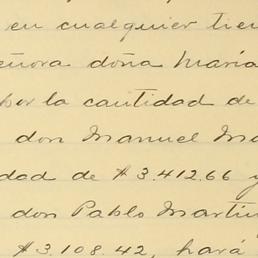 en cualquier tiem
eñora doña María
por la cantidad de
don Manuel Ma
dad de $3.412.66 y
don Pablo Martin
$3.108.42, hará